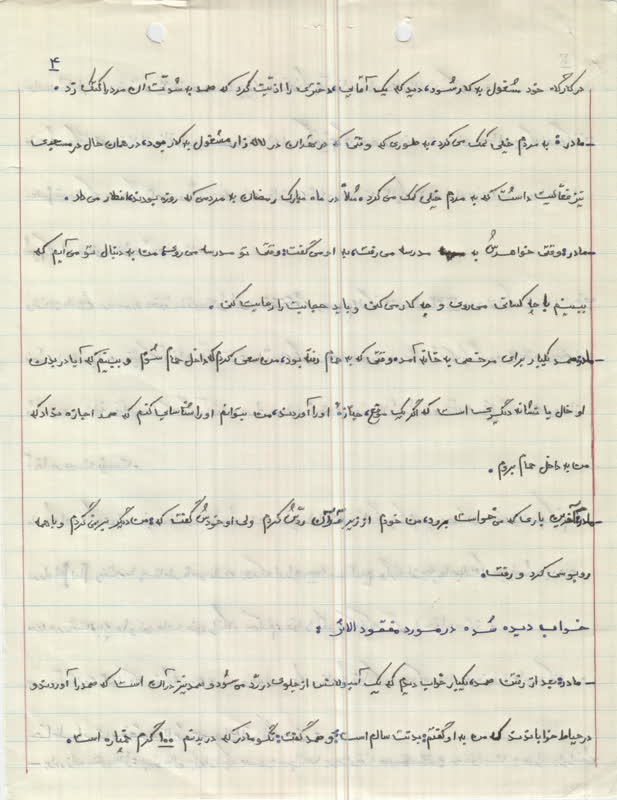 ۴
در کارگاه خود مشغول به کار شود، دید که یک آقایی، دختری را اذیت کرد که صمد به شدت آن مرد را کتک زد.
- مادر: به مردم خیلی کمک می‌کرد، به طوری که وقتی که در تهران در لاله زار مشغول به کار بود، در همان حال در مسجدی
نیز فعالیت داشت که به مردم خیلی کمک می‌کرد، مثلاً در ماه مبارک رمضان به مردمی که روزه بودند، افطار می‌داد.
- مادر: وقتی خواهرش به مدرسه می‌رفت، به او می‌گفت: وقتی تو مدرسه می‌روی، من به دنبال تو می‌آیم که
ببینم با چه کسانی می‌روی و چه کار می‌کنی و باید حجابت را رعایت کنی.
- مادر: صمد یکبار برای مرخصی به خانه آمد، وقتی که به حمام رفته بود، من سعی کردم که داخل حمام شوم و ببینم که آیا در بدن
او خال یا نشانه دیگری است که اگر یک موقع، جنازهٔ او را آوردند، من بتوانم او را شناسایی کنم که صمد اجازه نداد که
من به داخل حمام بروم.
- مادر: آخرین باری که می‌خواست برود، من خودم از زیر قرآن ردش کردم ولی او خودش گفت که: من دیگر برنمی‌گردم و با همه
روبوسی کرد و رفت.
خواب دیده شده در مورد مفقود الاثر:
- مادر: بعد از رفتن صمد، یکبار خواب دیدم که یک آمبولانس از جلوی در رد می‌شود و صمد نیز در آن است که صمد را آوردند و
در حیاط خواباندند که من به او گفتم: بدنت سالم است؟ و صمد گفت: نگو مادر که در بدنم ۱۰۰ گرم خمپاره است.